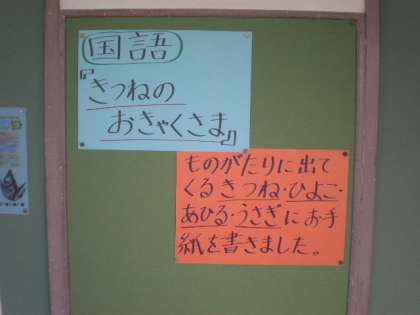 国語
『きつねの
おきゃくさま』
ものがたりに出て
くるきつね・ひよこ・
あひる・うさぎにお手
紙を書きました。